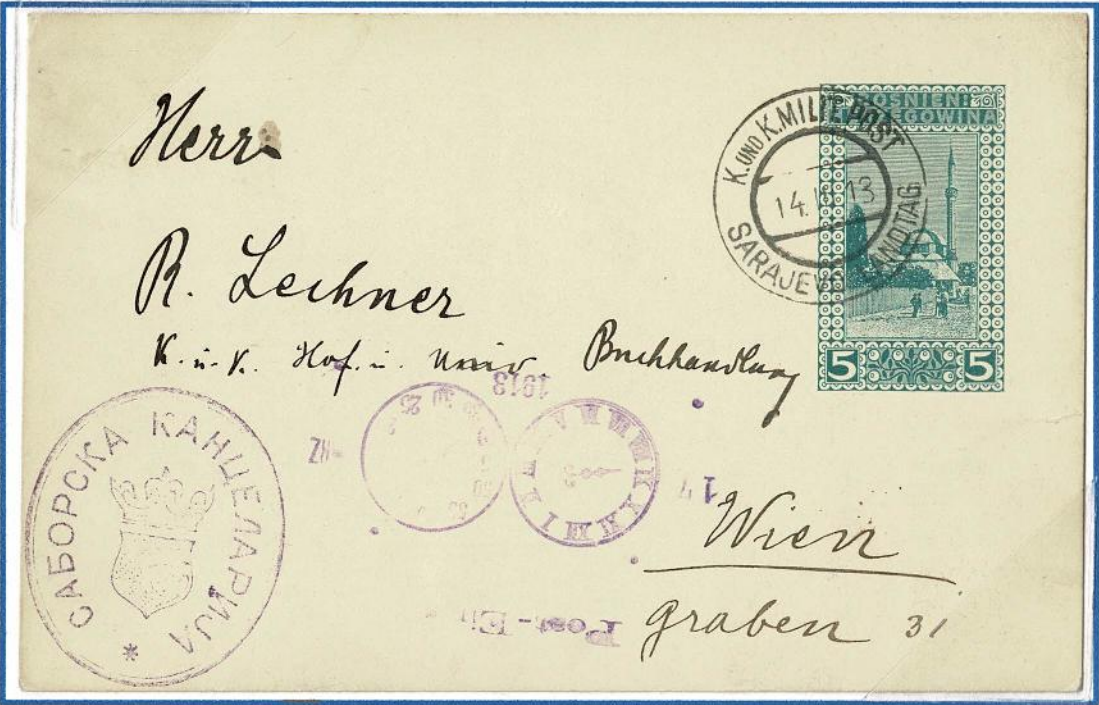 Herrn
R. Lechner
K. u. K. Hof. u. Univ. Buchhandlung
Wien
Graben 31
BOSNIEN-
HERCEGOWINA
5 5
K. UND K. MILIT. POST
14. 13
SARAJEVO LANDTAG
САБОРСКА КАНЦЕЛАРИЈА
1913
17
Post-Ei